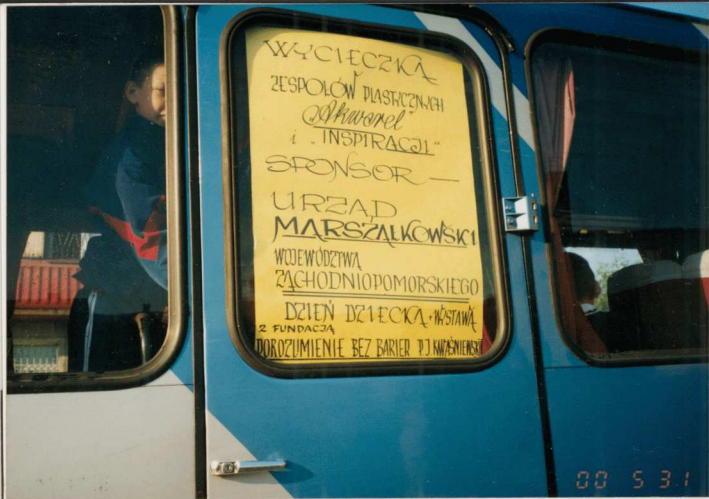 WYCIECZKA
ZESPOŁÓW PLASTYCZNYCH
„Akwarel"
i „INSPIRACJI"
SPONSOR —
URZĄD
MARSZAŁKOWSKI
WOJEWÓDZTWA
ZACHODNIOPOMORSKIEGO
DZIEŃ DZIECKA + WYSTAWA
Z FUNDACJĄ
POROZUMIENIE BEZ BARIER P. J. KWAŚNIEWSKI
00 5 31